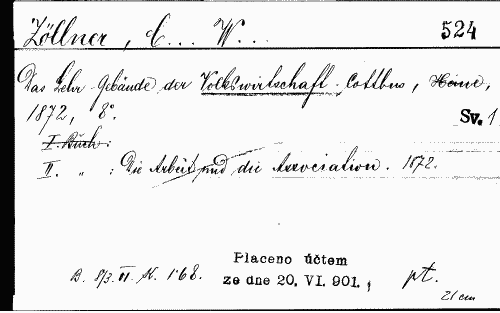 Zöllner, C... W...
524
Das Lehr-Gebäude der Volkswirtschaft. Cottbus, Heine,
1872, 8°.
Sv. 1
I. Buch:
II. „ : Die Arbeit und die Association. 1872.
Placeno účtem
B. 8/3. VI. K. 1·68.
ze dne 20. VI. 901.,
pt.
21 cm